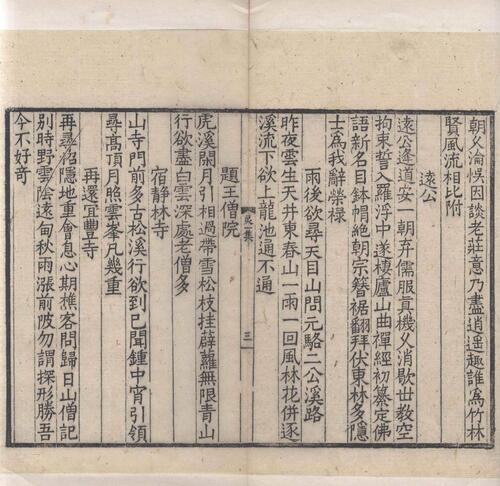 朝久淪悞因談老莊意乃盡逍遙趣誰爲竹林
賢風流相比附
遠公
遠公逢道安一朝弃儒服真機久消歇世教空
拘束誓入羅浮中遂棲廬山曲禪經初纂定佛
語新名目鉢帽絶朝宗簪裾翻拜伏東林多隱
士爲我辭榮禄
雨後欲尋天目山問元駱二公溪路
昨夜雲生天井東春山一雨一回風林花併逐
溪流下欲上龍池通不通
三
題王僧院
虎溪閑月引相過帶雪松枝挂薜蘿無限青山
行欲盡白雲深處老僧多
宿静林寺
山寺門前多古松溪行欲到已聞鍾中宵引領
尋高頂月照雲峯凡幾重
再還宜豐寺
再尋招隱地重會息心期樵客問歸日山僧記
别時野雲陰遠甸秋雨漲前陂勿謂探形勝吾
今不好奇